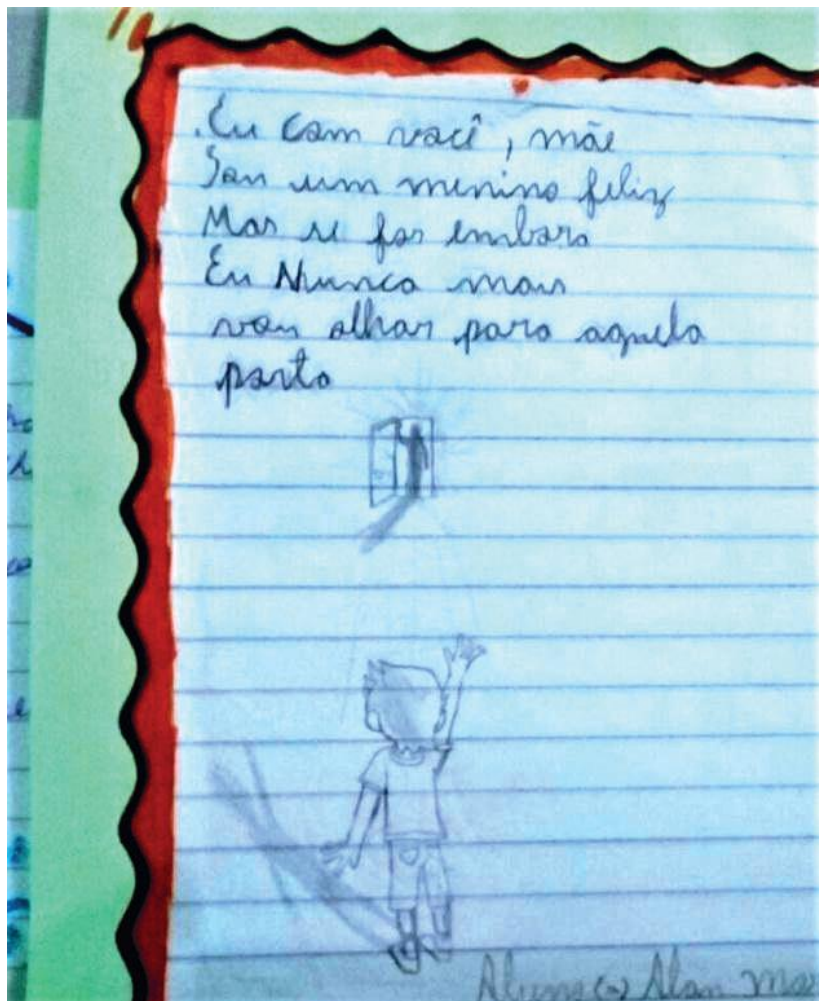 .Eu com você, mãe
Sou um menino feliz
Mas se for embora
Eu Nunca mais
vou olhar para aquela
porta
Aluno(a) Alan